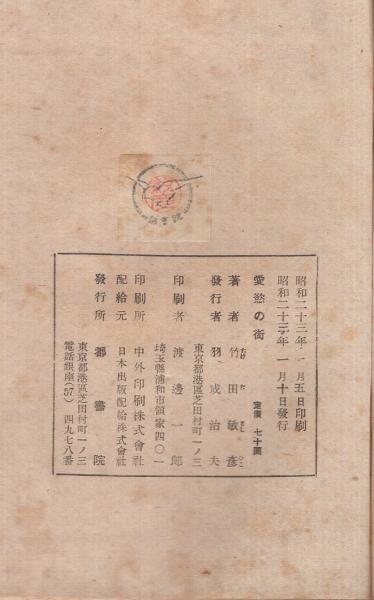 昭和二十三年一月五日印刷
昭和二十三年一月十日發行
愛慾の街 定價 七十圓
著者 竹田敏彦
たけ だ とし ひこ
發行者 羽成治夫
東京都港區芝田村町一ノ三
印刷者 渡邊一郎
埼玉縣浦和市領家四〇一
印刷所 中外印刷株式會社
配給元 日本出版配給株式會社
發行所 都書院
東京都港區芝田村町一ノ三
電話銀座(57)四九七八番